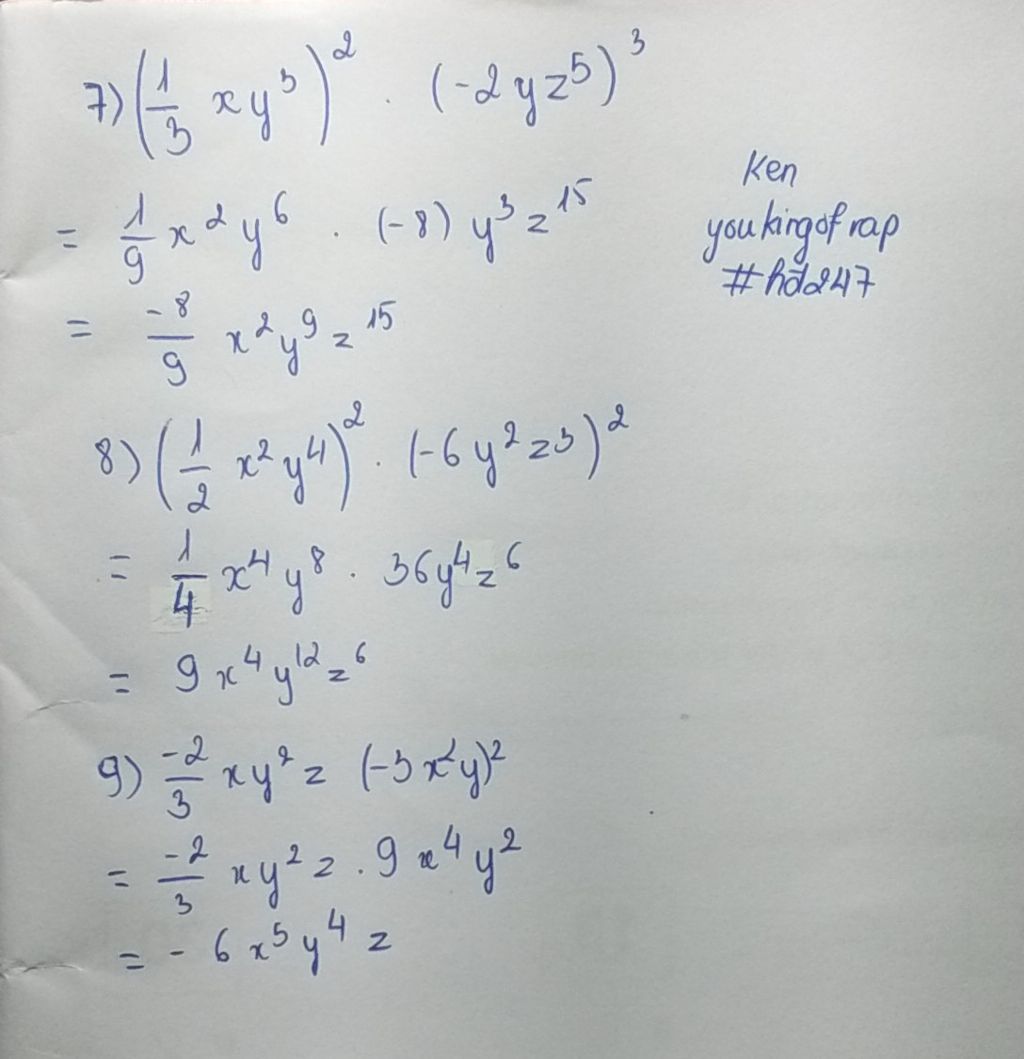 7) (1/3 xy³)² . (-2yz⁵)³
= 1/9 x²y⁶ . (-8) y³z¹⁵
= -8/9 x²y⁹z¹⁵
Ken
youkingofrap
#hd247
8) (1/2 x²y⁴)² . (-6y²z³)²
= 1/4 x⁴y⁸ . 36y⁴z⁶
= 9x⁴y¹²z⁶
9) -2/3 xy²z (-3x²y)²
= -2/3 xy²z . 9x⁴y²
= - 6x⁵y⁴z